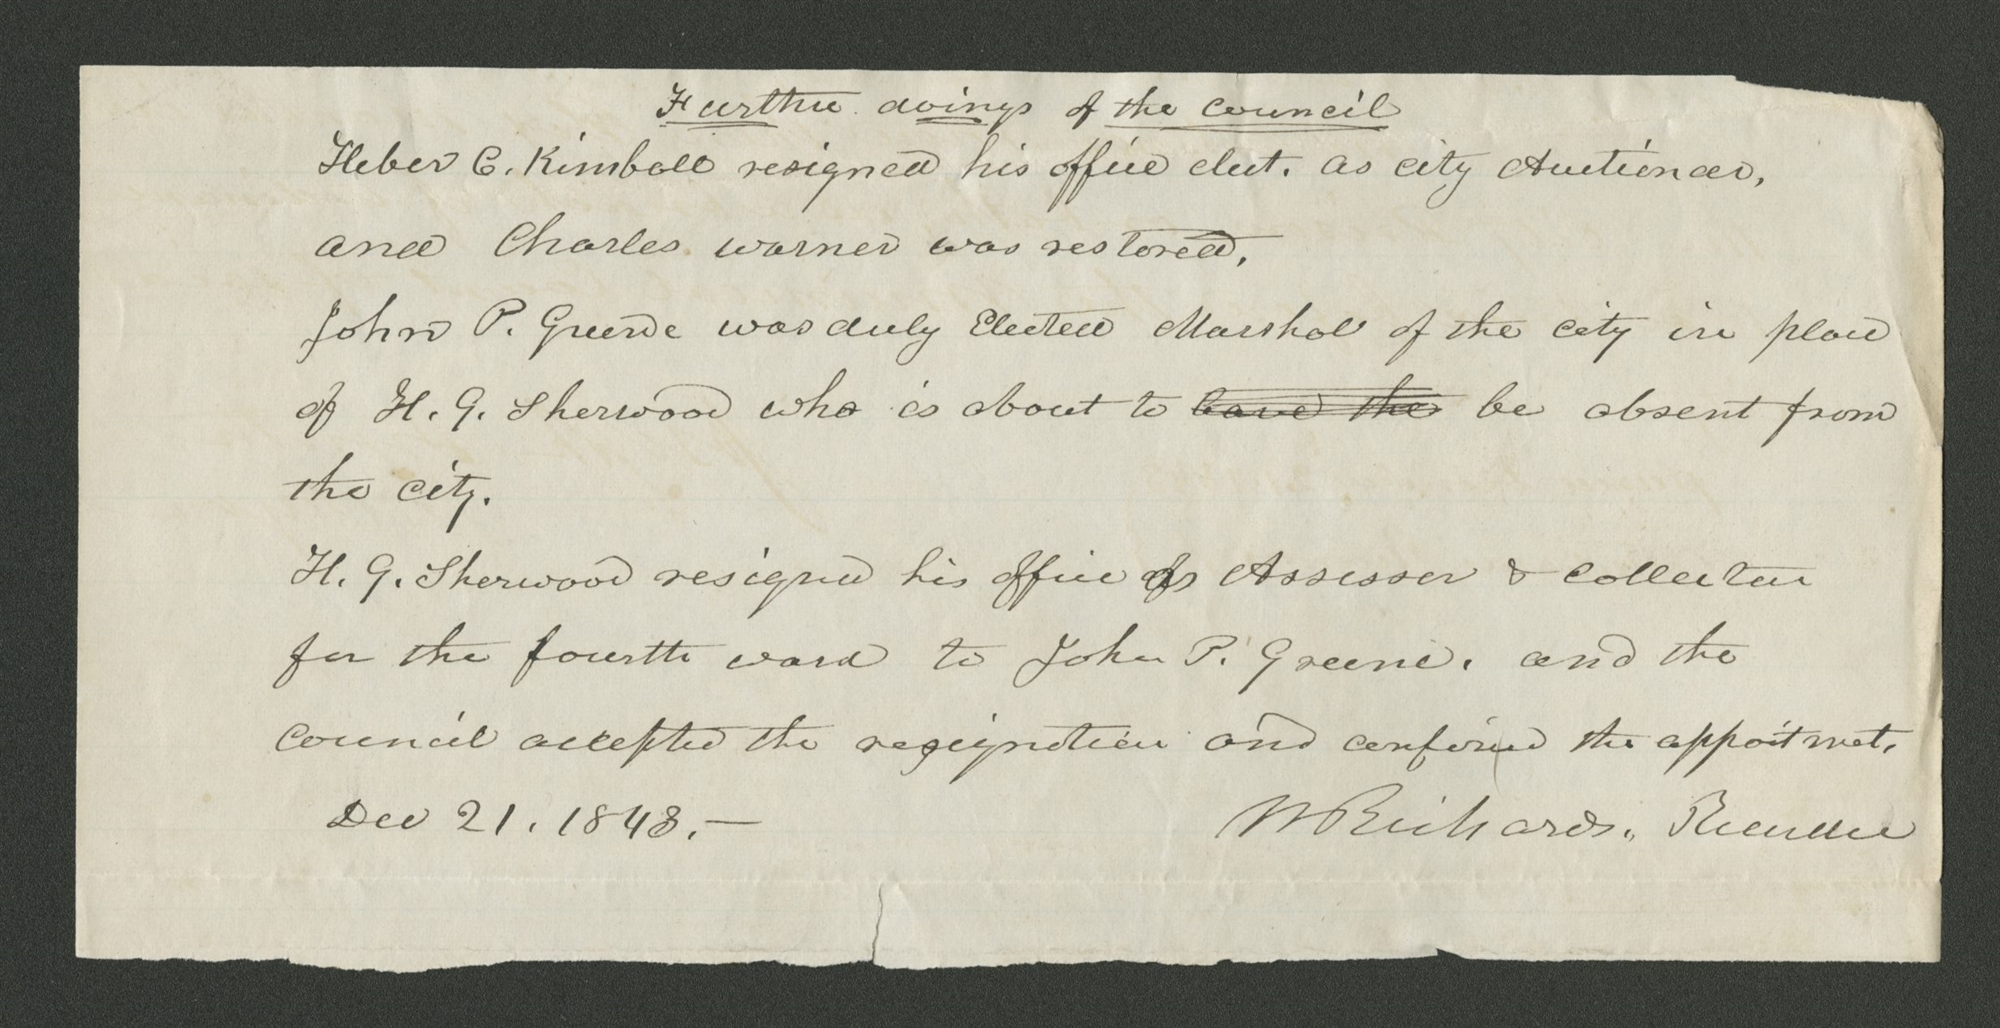 Further doings of the council
Heber C. Kimball resigned his office elect. as city Auctioneer,
and Charles warner was restored,
John P. Greene was duly Elected Marshal of the city in place
of H. G. Sherwood who is about to leave the be absent from
the city.
H. G. Sherwood resigned his office as Assessor & collector
for the fourth ward to John P. Greene. and the
council accepted the resignation and confirmd the appoitmet.
Dec 21. 1843.—
W Richards. Recorder